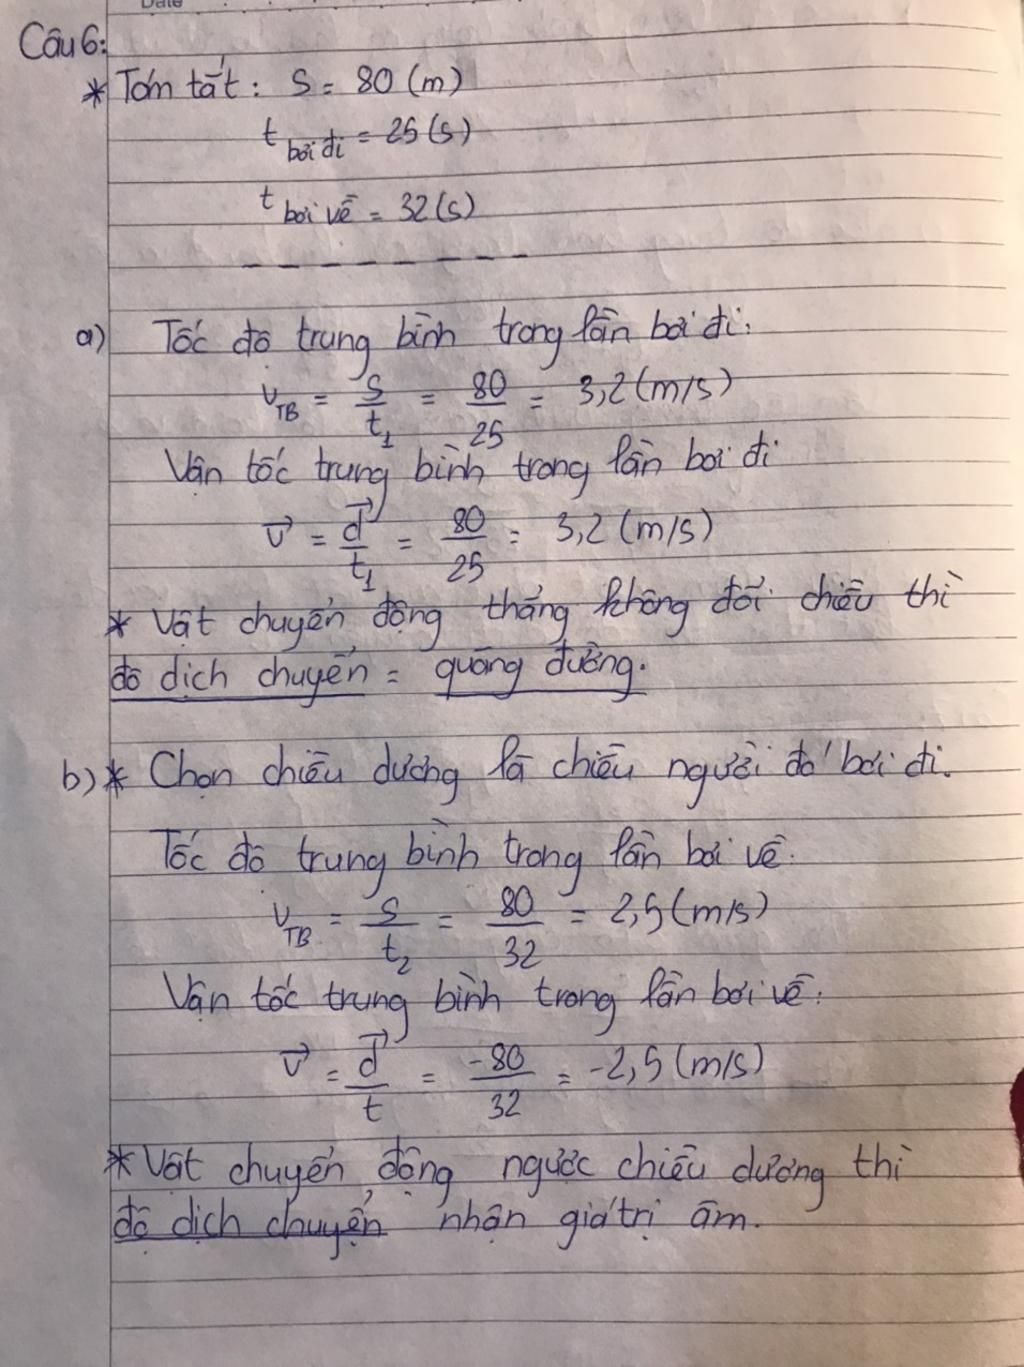 Date
Câu 6:
* Tóm tắt: S = 80 (m)
t bơi đi = 25 (s)
t bơi về = 32 (s)
a) Tốc độ trung bình trong lần bơi đi:
v TB = S/t1 = 80/25 = 3,2 (m/s)
Vận tốc trung bình trong lần bơi đi
v⃗ = d⃗/t1 = 80/25 = 3,2 (m/s)
* Vật chuyển động thẳng không đổi chiều thì
độ dịch chuyển = quãng đường.
b) * Chọn chiều dương là chiều người đó bơi đi.
Tốc độ trung bình trong lần bơi về.
v TB = S/t2 = 80/32 = 2,5 (m/s)
Vận tốc trung bình trong lần bơi về:
v⃗ = d⃗/t = -80/32 = -2,5 (m/s)
* Vật chuyển động ngược chiều dương thì
độ dịch chuyển nhận giá trị âm.